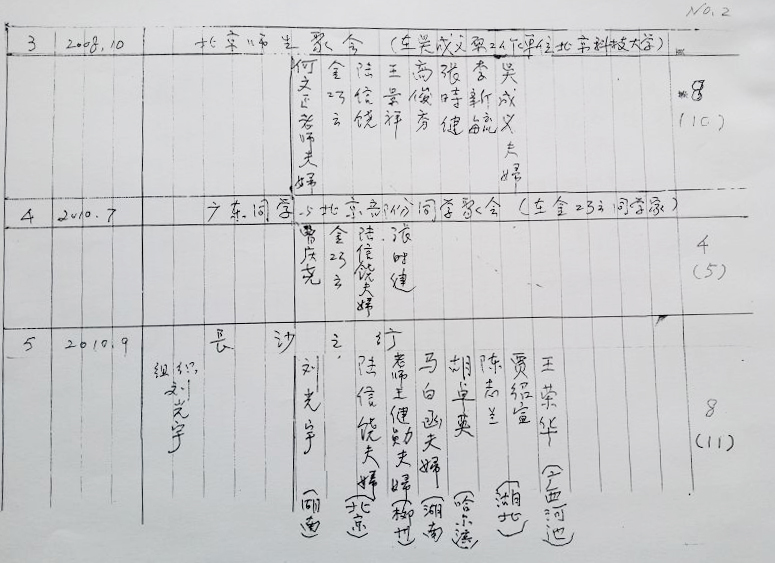 NO.2
3 2008.10 北京师生聚会 (在吴成义第2个单位北京科技大学)
何文正老师夫婦
金巧云
陆信饶
王景祥
高俊芳
張時健
李新毓
吴成义夫婦
8
(10)
4 2010.7 广东同学与北京部份同学聚会 (在金巧云同学家)
曹庆尧
金巧云
陆信饶夫婦
張时健
4
(5)
5 2010.9 長沙之行
组织,
刘光宇
刘光宇 (湖南)
陆信饶夫婦 (北京)
老师王健勋夫婦 (柳州)
马白函夫婦 (湖南)
胡卓英 (哈尔滨)
陈志兰
贾绍宣 (湖北)
王荣华 (广西河池)
8
(11)